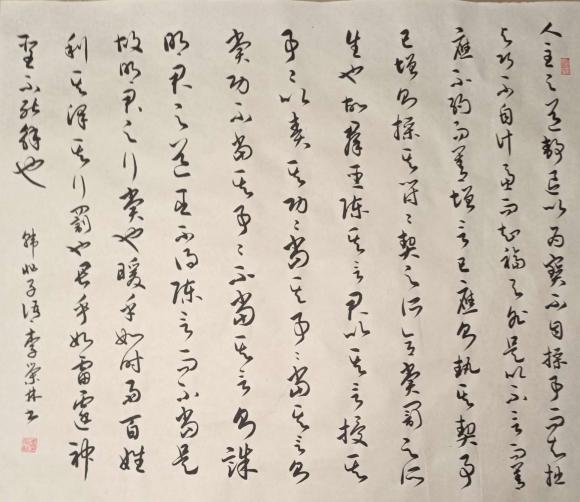 人主之道靜退以為寶不自操事而知拙
與巧不自計慮而知福與咎是以不言而善
應不約而善增言已應則執其契事
已增則操其符々契之所合賞罰之所
生也故群臣陳其言君以其言授其
事々以責其功々當其事々當其言則
賞功不當其事々不當其言則誅
明君之道臣不得陳言而不當是
故明君之行賞也暖乎如時雨百姓
利其澤其行罰也畏乎如雷霆神
聖不能解也
韓非子語李榮林書